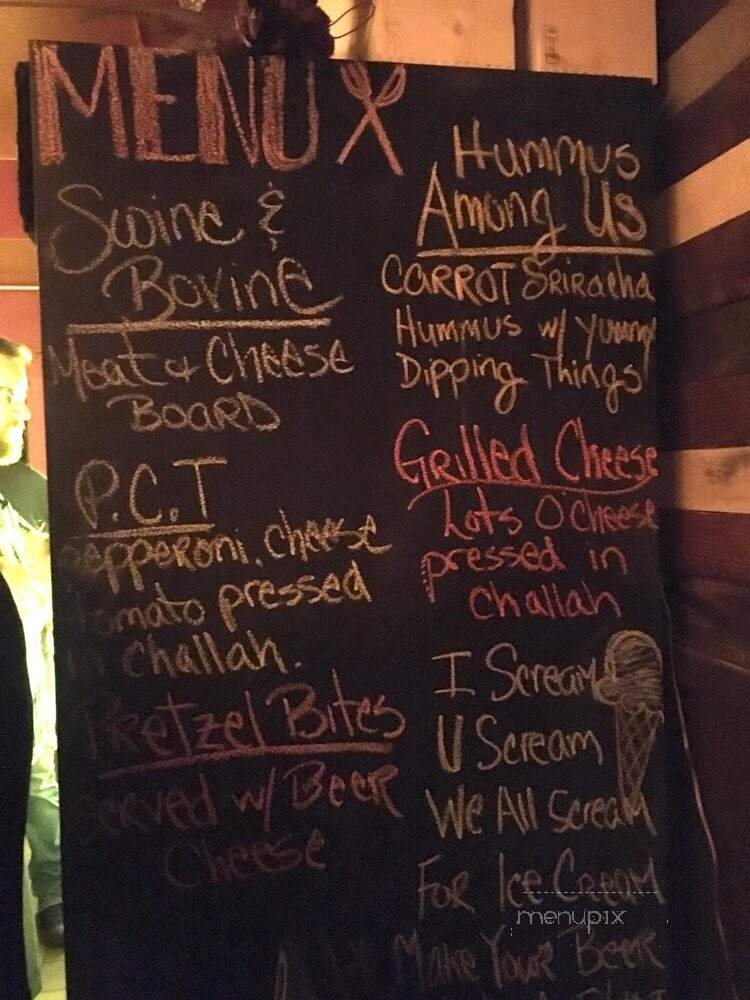 MENU
Swine &
Bovine
Meat & Cheese
Board
P.C.T
Pepperoni, cheese
tomato pressed
in challah.
Pretzel Bites
Served w/ Beer
Cheese
Hummus
Among Us
CARROT SRIRACHA
Hummus w/ yummy
Dipping Things
GRilled Cheese
Lots O' cheese
pressed in
challah
I Scream
U Scream
We All Scream
For Ice Cream
Make Your Beer
menupix